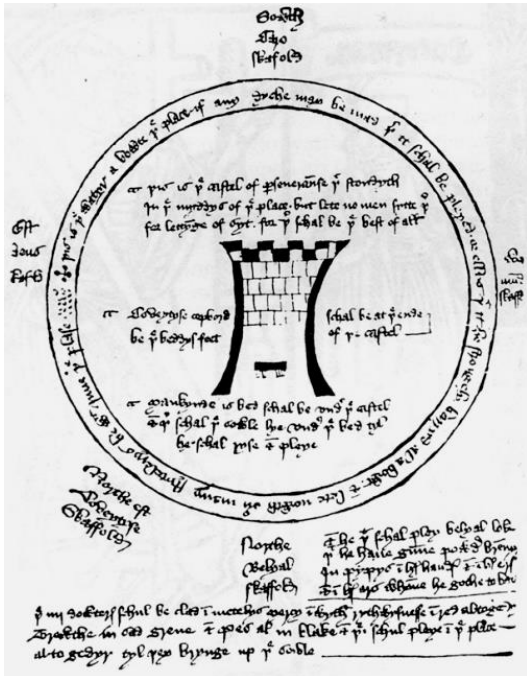 Sowth
Caro
skafold
þis is þe watyr a bowte þe place if any dyche may be mad þer it schal be pleyed or ellys þat it be stronglye barryd al a bowt & lete nowth ovyr many stytelerys be wt inne þe plase
þis is þe castel of perseueraunse þt stondyth
In þe myddys of þe place but lete no men sytte þer
for lettynge of syt for þer schal be þe best of all
Est
deus
skafold
skaffold
Coveytyse copbord schal be at þe ende
be þe beddys feet of þe castel
Mankynde is bed schal be vndyr þe castel
& þer schal þe sowle lye vndyr þe bed tyl
he schal ryse & pleye
Northe est
Coveytyse
Skaffold
Northe
Belyal
skaffold
& he þt schal pley belyal loke
þt he haue gunne powdyr brennyn
In pypys in hys handys & in hys erys
& in hys ars whanne he gothe to bat
þe iiij dowterys schul be clad in mentelys Mercy in wyth rythwysnesse in red altogedyr
Trewthe in sad grene & Pes al in blake & þei schul pleye in þe place
al to gedyr tyl þey brynge up þe sowle